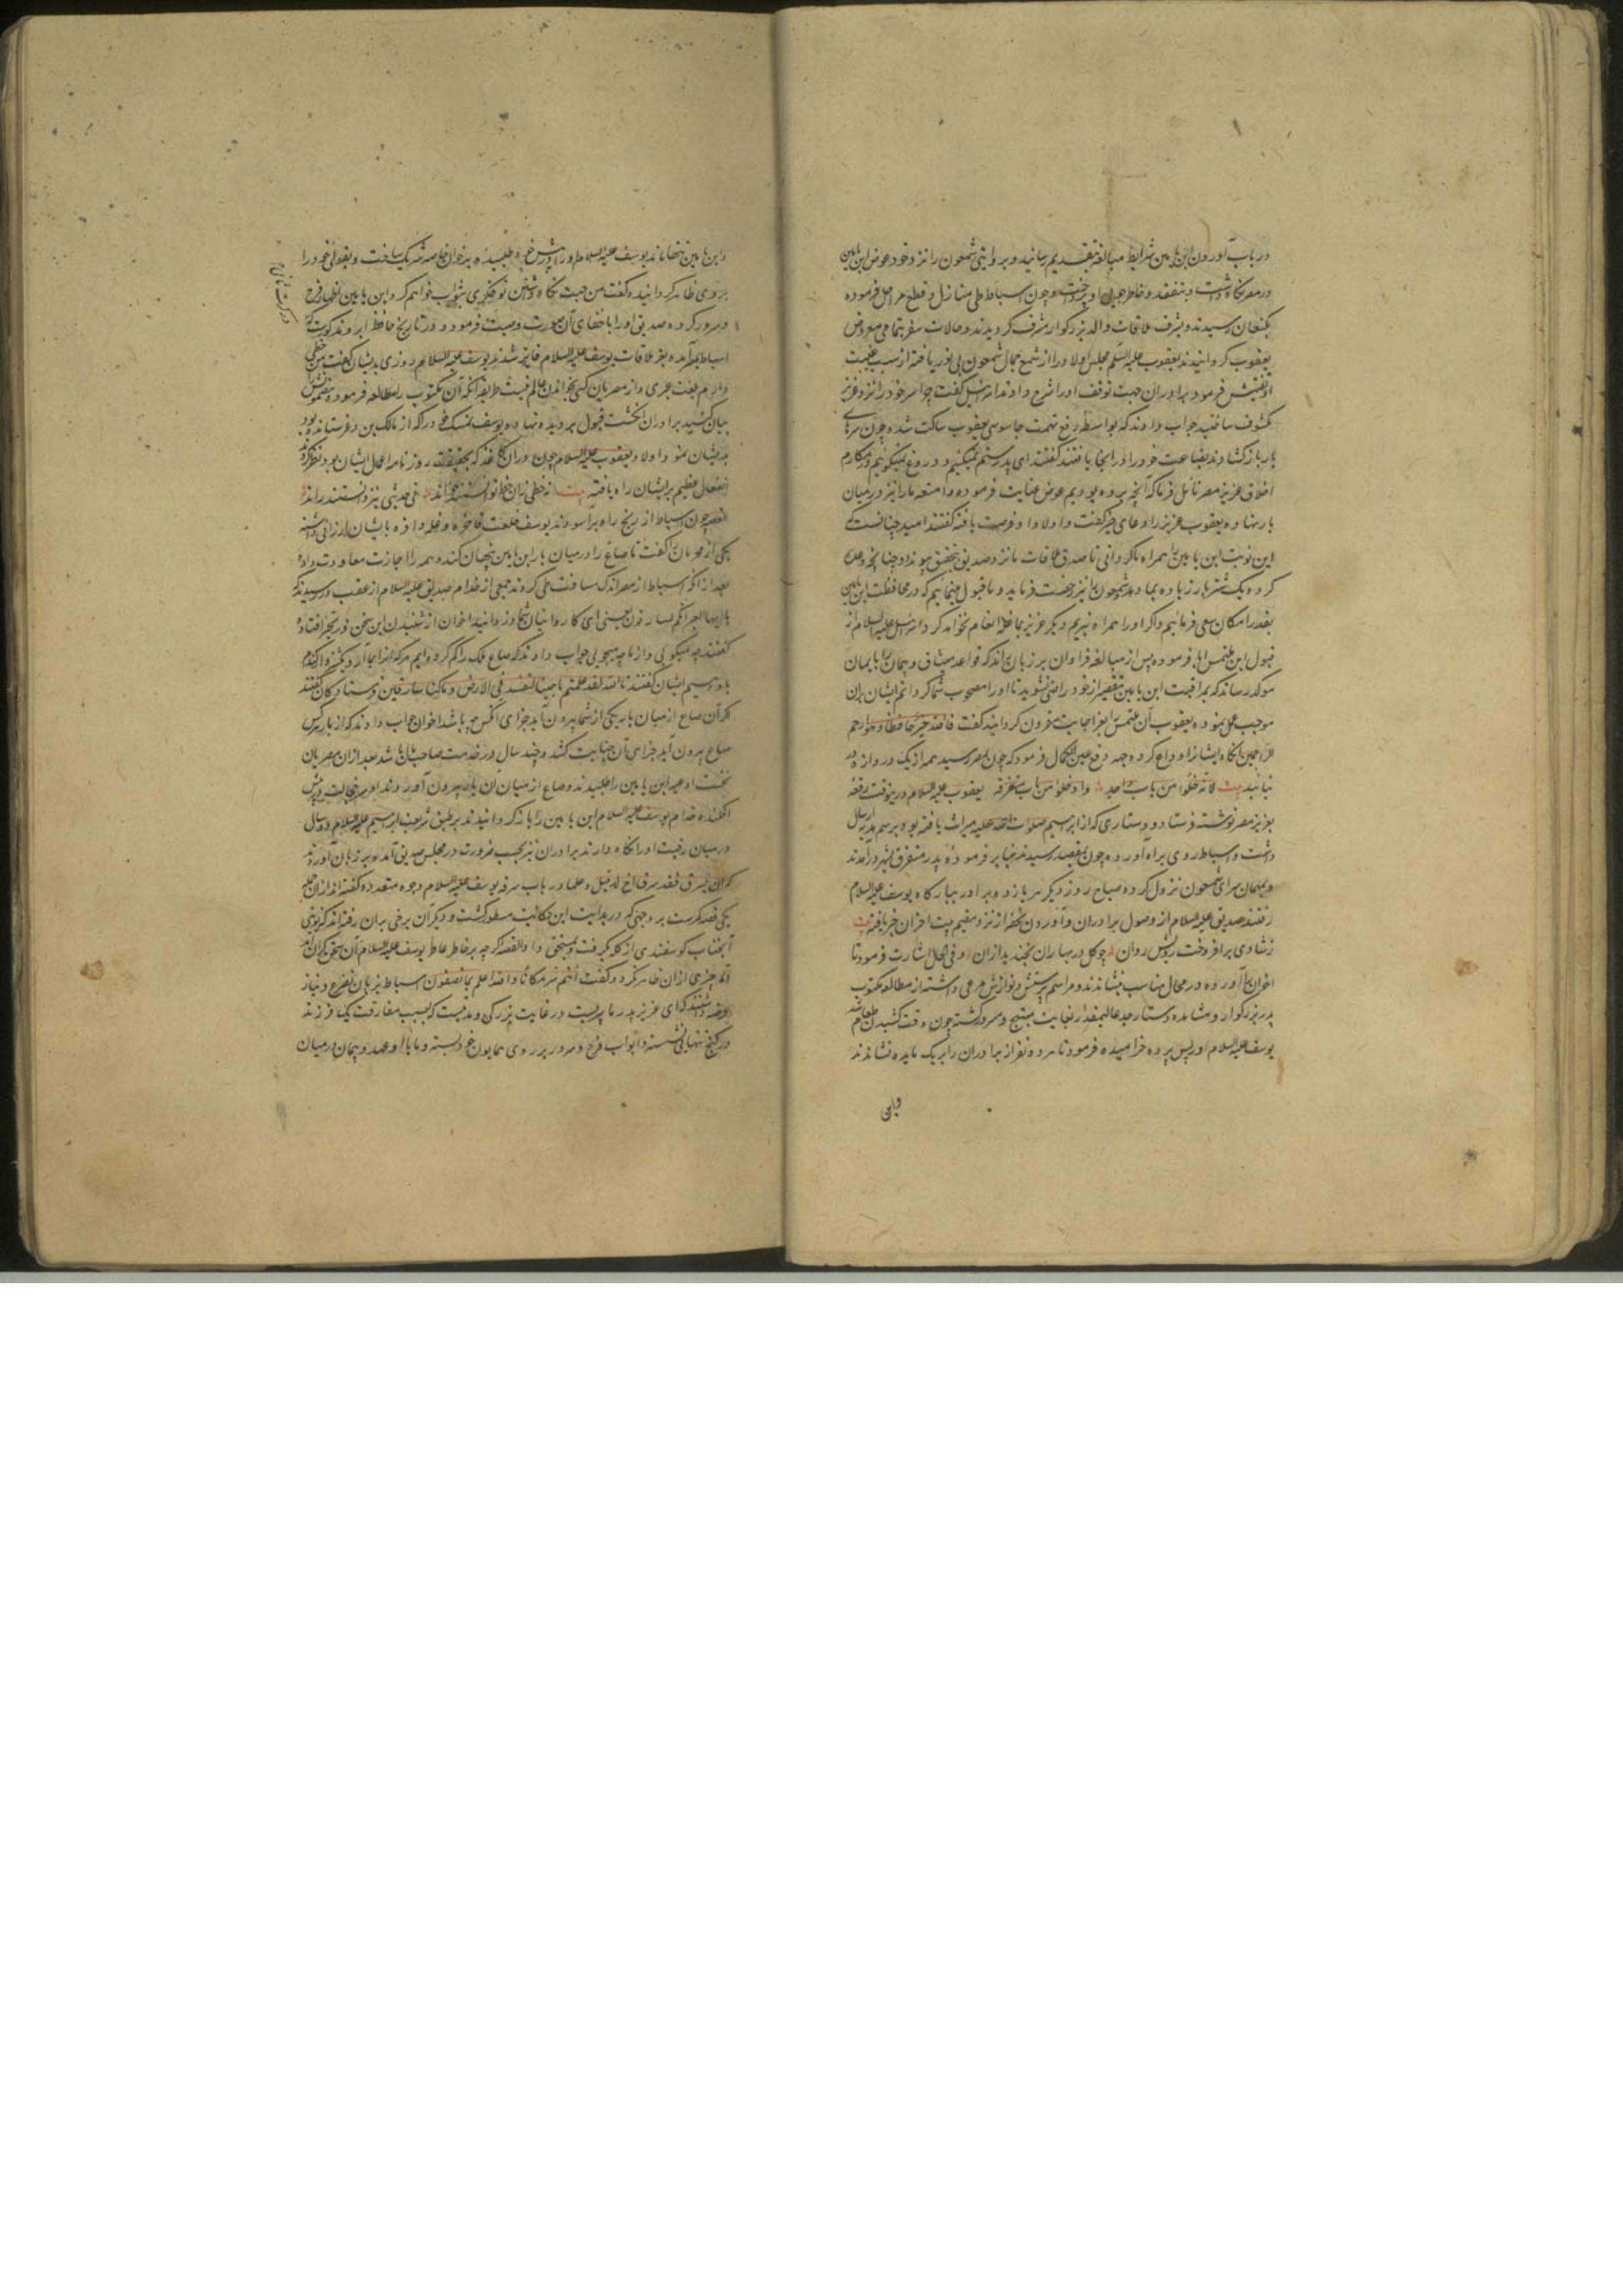 در باب آوردن ابن یامین شرایط مبالغه بتقدیم رسانید و بروایتی شمعون را نزد خود عوض ابن یامین
در مصر نگاه داشت و بتفقد و خاطرجویی او پرداخت و چون اسباط طی منازل و قطع مراحل فرموده
بکنعان رسیدند و بشرف ملاقات والد بزرگوار مشرف گردیدند و حالات سفر بتمامی معروض
یعقوب گردانیدند یعقوب علیه السلم مجلس اولاد را از شمع جمال شمعون بی نور یافته از سبب غیبت
او تفتیش فرمود برادران جهت توقف او را شرح دادند اسرائیل گفت چرا سر خود را نزد عزیز
مکشوف ساختید جواب دادند که بواسطه رفع تهمت جاسوسی یعقوب ساکت شده چون سرهای
بار باز کشادند بضاعت خود را در آنجا یافتند گفتند ای پدر ستم نمیکنیم و دروغ نمیگوییم در مکارم
اخلاق عزیز مصر تأمل فرما که آنچه برده بودیم عوض عنایت فرموده و امتعه ما را نیز در میان
بار نهاده یعقوب عزیز را دعای خیر گفت و اولاد او فرصت یافته گفتند امید چنانست که
این نوبت ابن یامین را همراه ما گردانی تا صدق ملاقات ما نزد صدیق بتحقیق پیوندد و چنانچه وعده
کرده یک شتربار زیاده بما دهد و شمعون را نیز رخصت فرماید و ما قبول مینماییم که در محافظت ابن یامین
بقدر امکان سعی فرمائیم و اگر او را همراه نبریم دیگر عزیز بما غله انعام نخواهد کرد اسرائیل علیه السلام از
قبول این ملتمس ابا فرموده پس از مبالغه فراوان بر زبان راند که قواعد میثاق و پیمان را بایمان
موکد رسانند که بمراقبت ابن یامین بتقصیر از خود راضی نشوید تا او را مصحوب شما گردانم ایشان بران
موجب عمل نموده یعقوب آن ملتمس را بعز اجابت مقرون گردانید گفت فالله خیر حافظا و هو ارحم
الراحمین آنگاه ایشانرا وداع کرده جهه دفع عین الکمال فرمود که چون بمصر رسید همه از یک دروازه در
نیائید لا تدخلوا من باب واحد وادخلوا من ابواب متفرقة یعقوب علیه السلام درینوقت رقعه
بعزیز مصر نوشته فرستاد و دستاری که از ابرهیم صلوات الله علیه میراث یافته بود برسم هدیه ارسال
داشت و اسباط روی براه آورده چون بمقصد رسیدند بنا بر فرموده پدر متفرق بشهر درآمدند
و بمهمان سرای شمعون نزول کرده صباح روز دیگر هر یازده برادر ببارگاه یوسف علیه السلام
رفتند صدیق علیه السلام از وصول برادران و آوردن تحفه از نزد مقیم بیت احزان خبر یافته بیت
ز شادی برافروخت روان چو گل در بهاران بخندید ازان و فی الحال اشارت فرمود تا
اخوان را آورده در محال مناسب بنشاندند و مراسم پرسش و نوازش مرعی داشته از مطالعه مکتوب
پدر بزرگوار و مشاهده دستار جد عالیمقدار بغایت مبتهج و مسرور گشته چون وقت کشیدن طعام شد
یوسف علیه السلام در پس پرده خرامیده فرمود تا هر دو نفر از برادران را بر یک مایده نشاندند
وابن
وابن یامین تنها ماند یوسف علیه السلام او را در پیش خود طلبیده بر خوان خاصه شریک ساخت و بقولی خود را
بر وی ظاهر گردانید و گفت من جهت نگاه داشتن تو فکری بثواب خواهم کرد و ابن یامین اظهار فرح
و سرور کرده صدیق او را باخفای آن صورت وصیت فرمود و در تاریخ حافظ ابرو مذکورست که
اسباط بمصر آمده بعز ملاقات یوسف علیه السلام فایز شدند یوسف علیه السلام روزی بدیشان گفت من خطی
دارم بلغت عبری و از مصریان کسی بخواندن عالم نیست طریقه آنکه آن مکتوب را مطالعه فرموده مضمونش
بیان کنید برادران انگشت قبول بر دیده نهاده یوسف تمسک خود را که از مالک بن دعر ستانده بود
بدیشان نمود و اولاد یعقوب علیه السلام چون در آن کاغذ که بحقیقت روزنامه اعمال ایشان بود نظر کردند
انفعال عظیم برایشان راه یافته بیت نه خطی زان خط توانستند خواند نی حدیثی نیز دانستند راند
القصه چون اسباط از رنج راه برآسودند یوسف خلعت فاخره و غله وافره بایشان ارزانی داشته
یکی از محرمان را گفت تا صاع را در میان بار ابن یامین پنهان کند و همه را اجازت معاودت داده
بعد از آنکه اسباط از مصر اندک مسافت طی کردند جمعی از خدام صدیق علیه السلام از عقب در رسیدند که
یا ایها العیر انکم لسارقون یعنی ای کاروانیان شما دزدانید اخوان از شنیدن این سخن در تحیر افتاده
گفتند چه میگویی و از ما چه میجویی جواب دادند که صاع ملک را گم کرده ایم هر که آنرا بما آرد یکشتر وار گندم
باو دهیم ایشان گفتند تالله لقد علمتم ما جئنا لنفسد فی الارض و ما کنا سارقین فرستادگان گفتند
اگر آن صاع از میان بار یکی از شما بیرون آید جزای آنکس چه باشد اخوان جواب دادند که از بار هر کس
صاع بیرون آید جزای آن جنایت کشد و چند سال در خدمت صاحب مال باشد بعد ازان مصریان
نخست اوعیه ابن یامین را طلبیدند و صاع از میان آن بار بیرون آوردند او سر خجالت در پیش
افکنده خدام یوسف علیه السلام ابن یامین را باز گردانیدند بر طبق شریعت ابرهیم علیه السلام دو سال
در میان رقیت او را نگاه دارند برادران نیز بحسب ضرورت در مجلس صدیق آمده بر زبان آوردند
که ان یسرق فقد سرق اخ له من قبل و علما در باب سرقه یوسف علیه السلام وجوه متعدده گفته اند ازان جمله
یکی قصه کمرست بر وجهی که در بدایت این حکایت مسطور گشت و دیگران برخی بران رفته اند که نوبتی
آنجناب گوسفندی از گله گرفت و بمستحق داد و القصه اگر چه بر خاطر عاطر یوسف علیه السلام آن سخن گران آمد
اما چیزی ازان ظاهر نکرد و گفت انتم شر مکانا و الله اعلم بما تصفون اسباط بزبان تضرع و نیاز
عرضه داشتند که ای عزیز پدر ما پیریست در غایت بزرگی و مدتیست که بسبب مفارقت یک فرزند
در کنج تنهائی نشسته و ابواب فرح و سرور بر روی همایون خود بسته و ما با او عهد و پیمان در میان